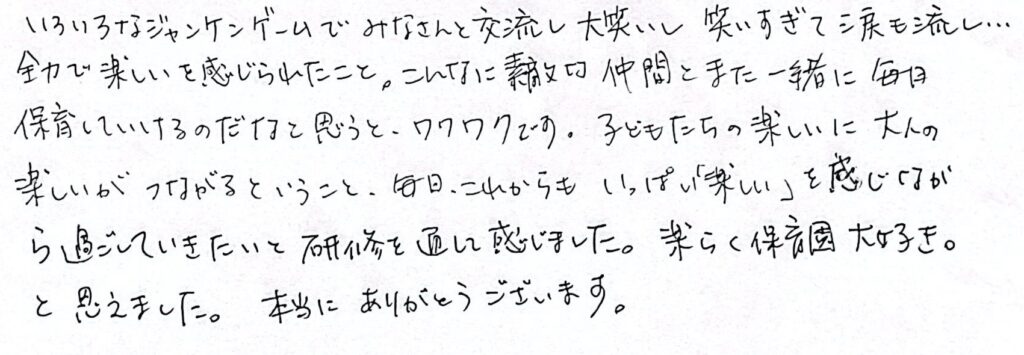 いろいろなジャンケンゲームで みなさんと交流し 大笑いし 笑いすぎて涙も流し…
全力で楽しいを感じられたこと。こんなに素敵な 仲間とまた一緒に毎日
保育していけるのだなと思うと、ワクワクです。子どもたちの楽しいに大人の
楽しいが つながるということ、毎日、これからも いっぱい「楽しい」を感じなが
ら過ごしていきたいと研修を通して感じました。楽らく保育園 大好き。
と思えました。 本当に ありがとうございます。